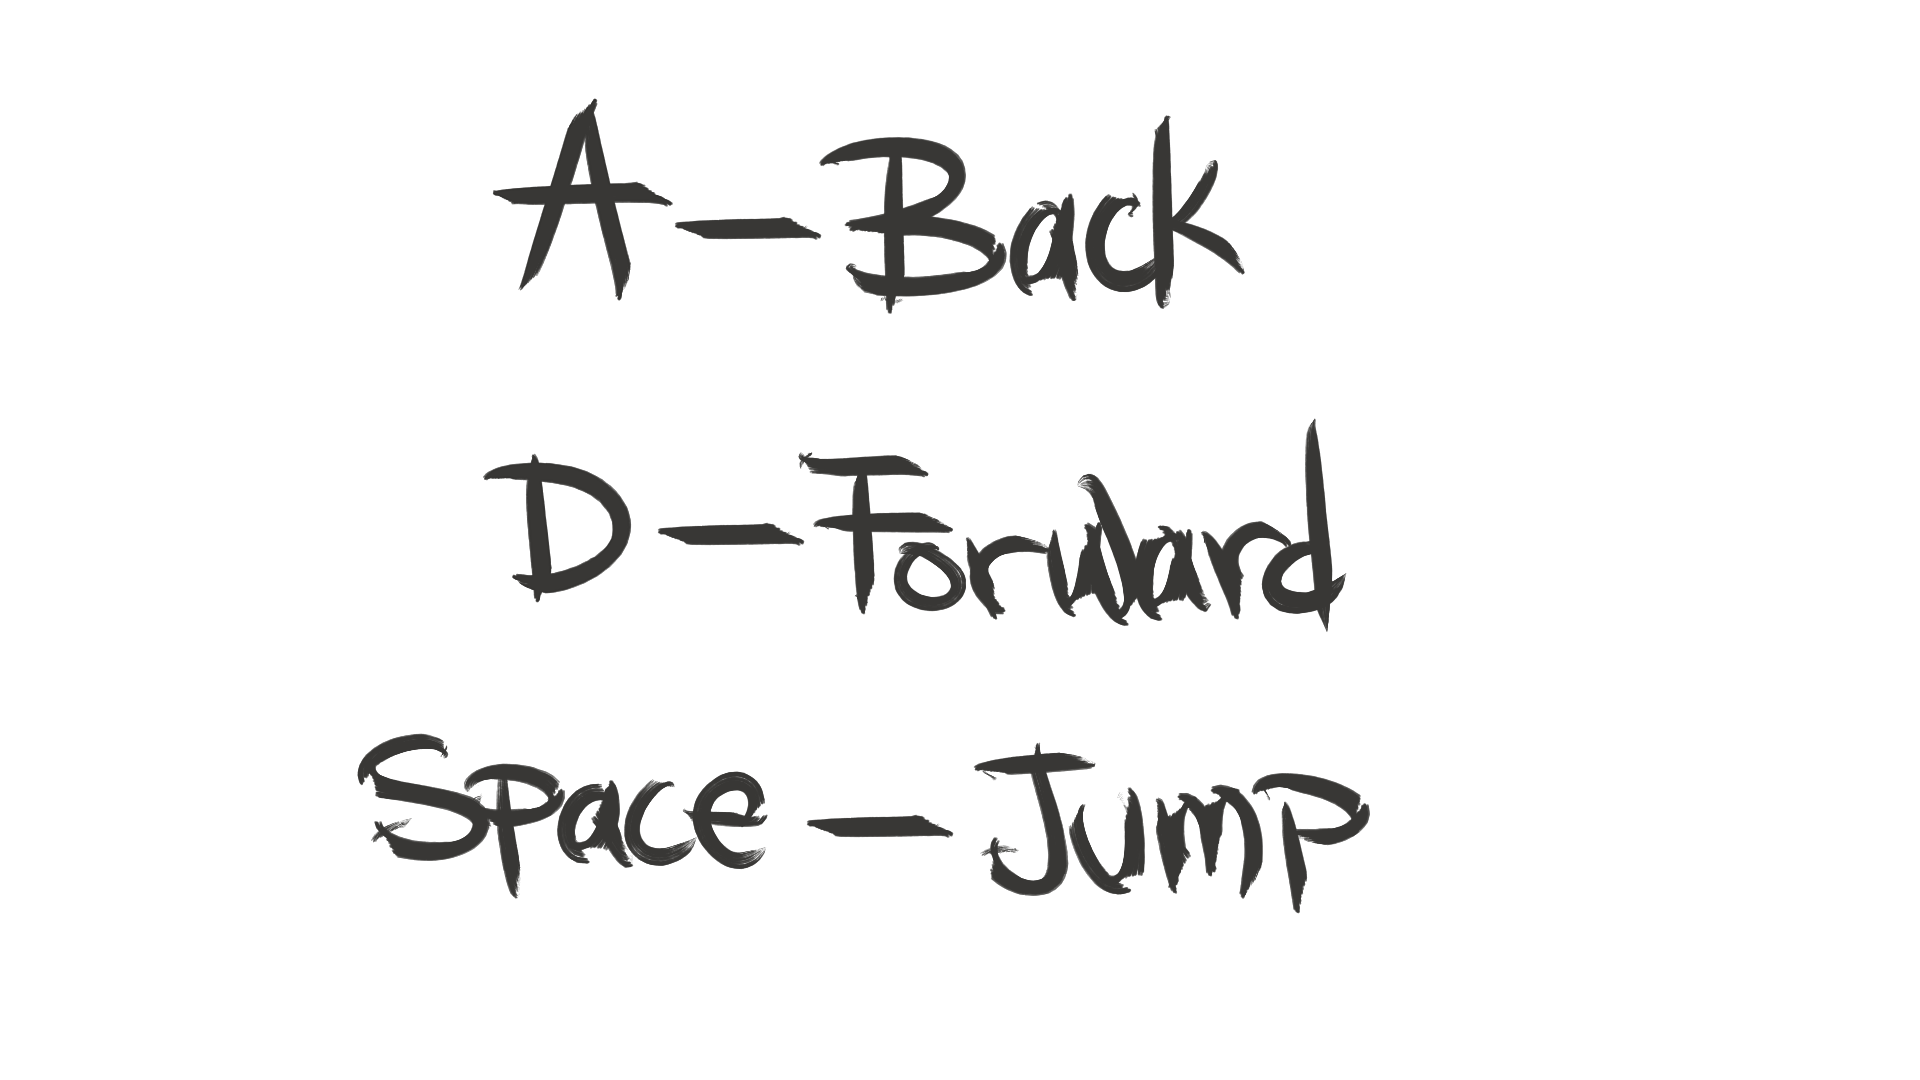 A - Back
D - Forward
Space - Jump